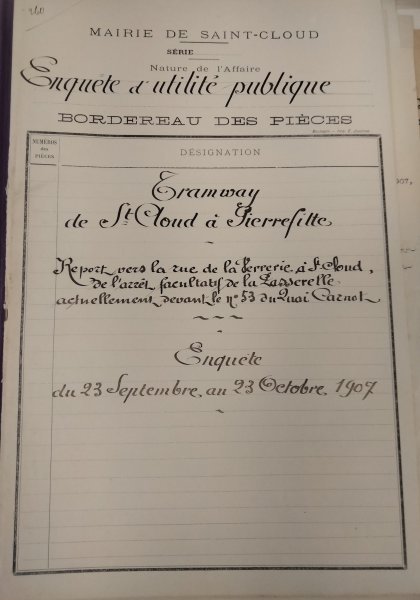 260
MAIRIE DE SAINT-CLOUD
SÉRIE
Nature de l'Affaire
Enquête d'utilité publique
BORDEREAU DES PIÈCES
NUMÉROS
des
PIÈCES
DÉSIGNATION
Tramway
de St Cloud à Pierrefitte
Report vers la rue de la Verrerie, à St Cloud,
de l'arrêt facultatif de la Passerelle
actuellement devant le n° 53 du Quai Carnot
Enquête
du 23 Septembre, au 23 Octobre, 1907